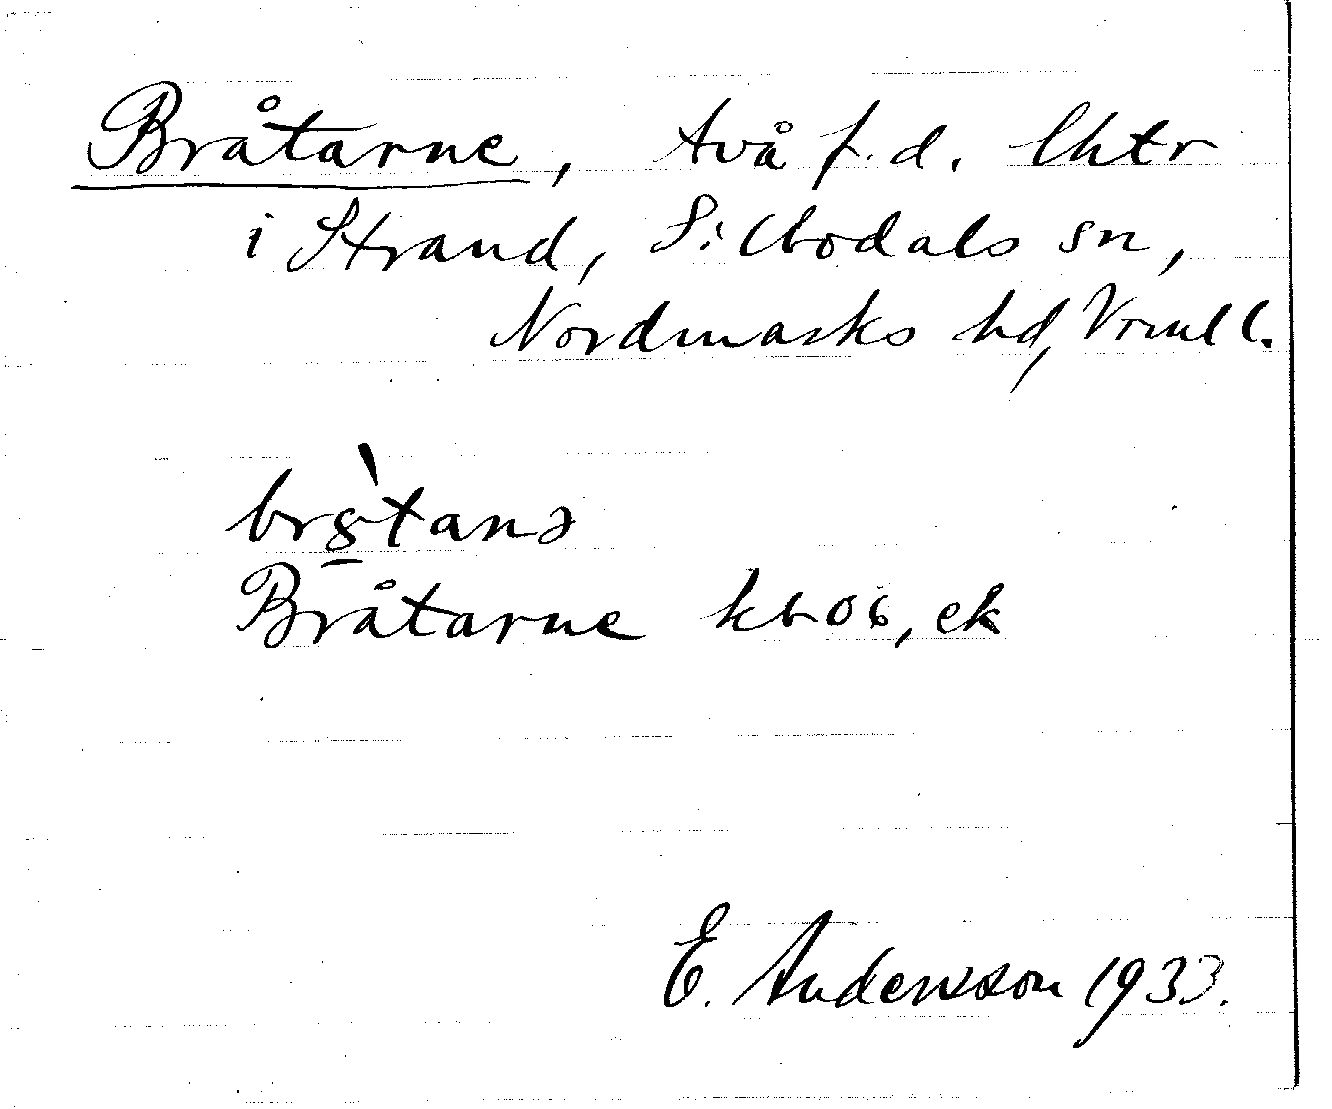 Bråtarne, två f.d. lhtr
i Strand, Silbodals sn,
Nordmarks hd, Vrml l.
Bråtarne kb 06, ek
E. Andersson 1933.